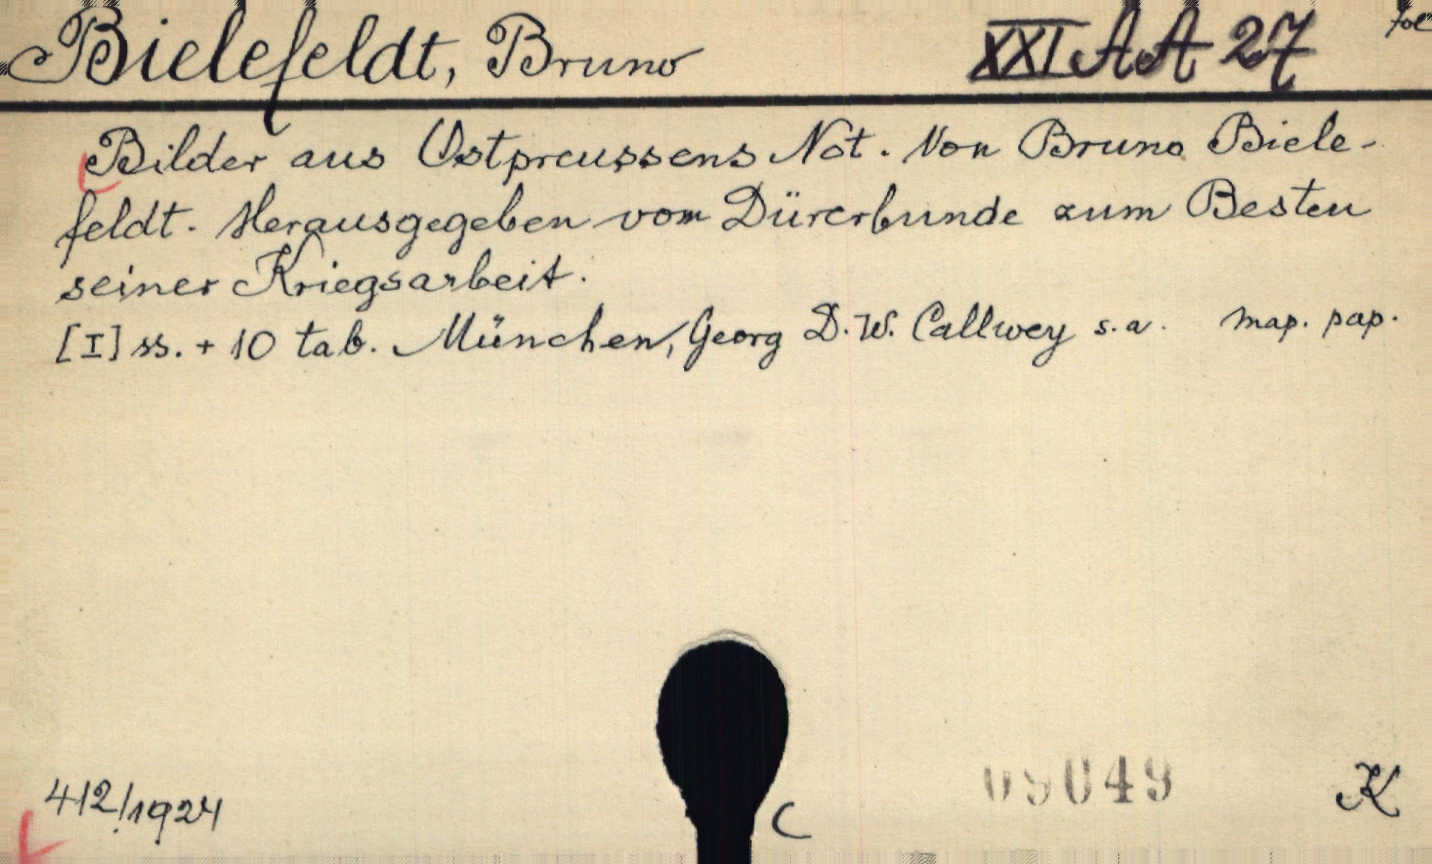 Bielefeldt, Bruno XXI AA 27 fol
Bilder aus Ostpreussens Not. Von Bruno Biele-
feldt. Herausgegeben vom Dürerbunde zum Besten
seiner Kriegsarbeit.
[I] ss. + 10 tab. München, Georg D. W. Callwey s. a. map. pap.
412/1924 C 09049 K